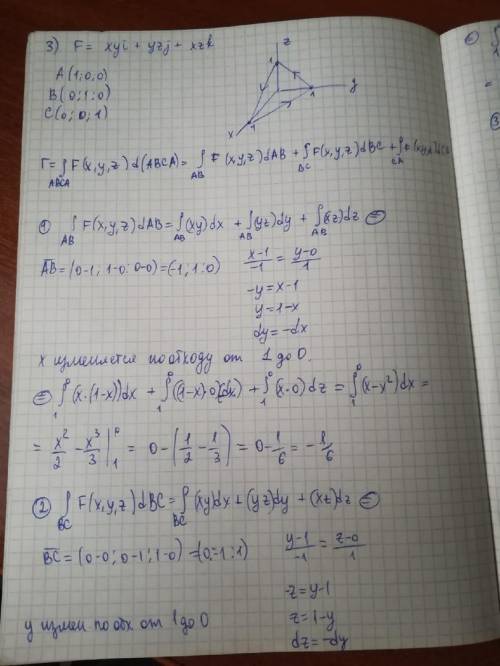 3) F = xyi + yzj + xzk
z
A(1;0;0)
B(0;1;0)
C(0;0;1)
1
1
y
x
1
Γ = ∫ABCA F(x,y,z) d(ABCA) = ∫AB F(x,y,z)dAB + ∫BC F(x,y,z)dBC + ∫CA F(x,y,z)dCA
① ∫AB F(x,y,z)dAB = ∫AB (xy)dx + ∫AB (yz)dy + ∫AB (xz)dz ⊜
AB = (0-1; 1-0; 0-0) = (-1; 1; 0)
(x-1)/-1 = (y-0)/1
-y = x-1
y = 1-x
dy = -dx
x изменяется по обходу от 1 до 0.
⊜ ∫₁⁰ (x·(1-x))dx + ∫₁⁰ ((1-x)·0)(dx) + ∫₁⁰ (x·0)dz = ∫₁⁰ (x-x²)dx =
= x²/2 - x³/3 |₁⁰ = 0-(1/2 - 1/3) = 0-1/6 = -1/6
② ∫BC F(x,y,z)dBC = ∫BC (xy)dx + (yz)dy + (xz)dz ⊜
BC = (0-0; 0-1; 1-0) = (0;-1;1)
(y-1)/-1 = (z-0)/1
-z = y-1
z = 1-y
dz = -dy
y измен по обх от 1 до 0